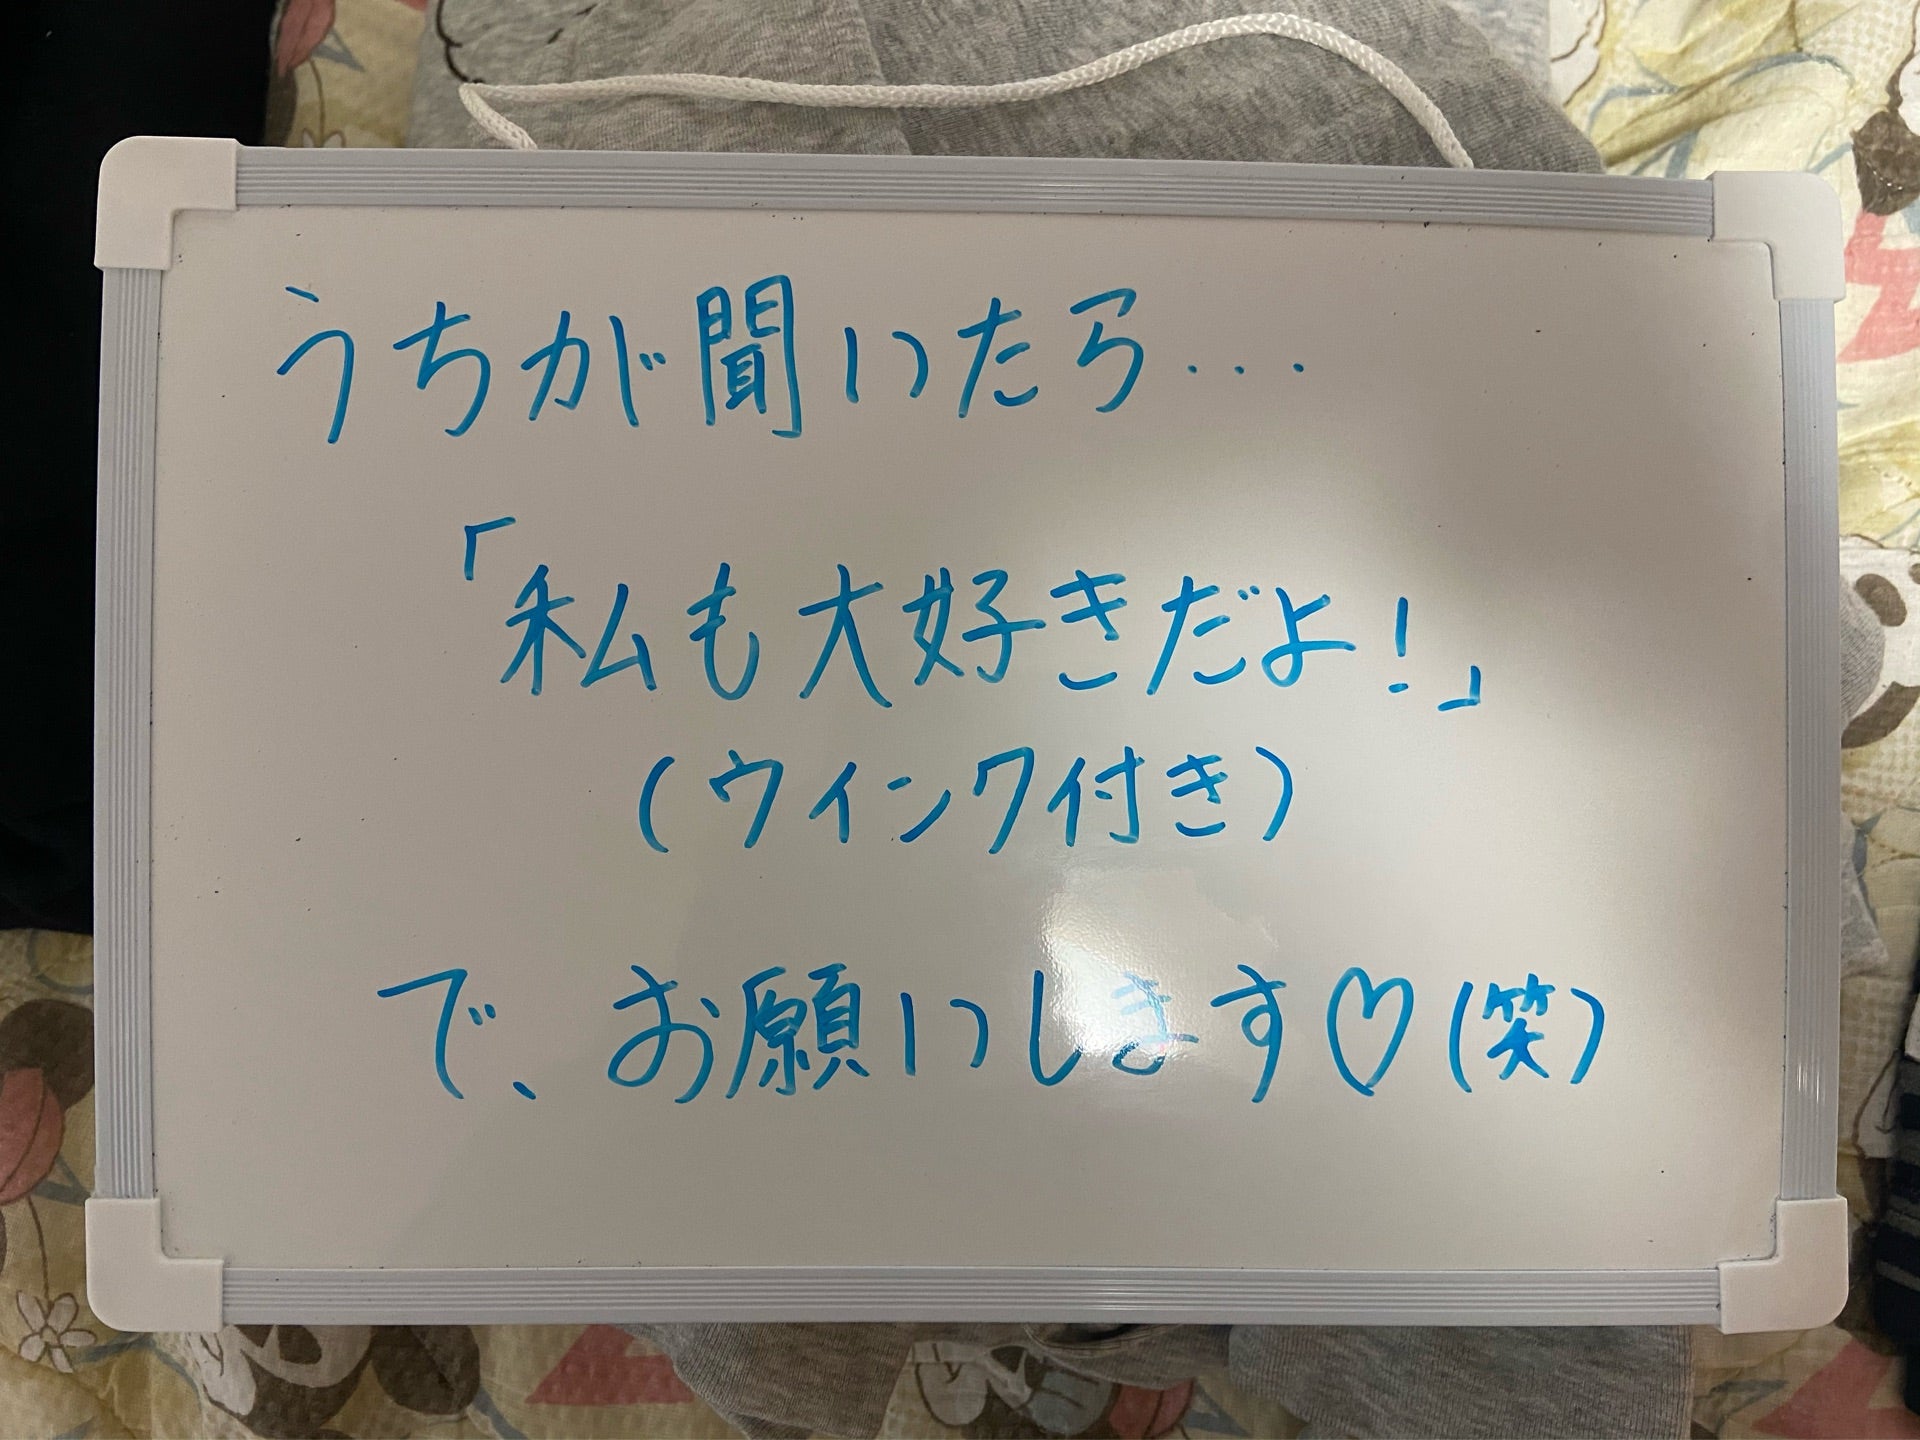 うちが聞いたら...
「私も大好きだよ!」
(ウインク付き)
で、お願いします♡(笑)